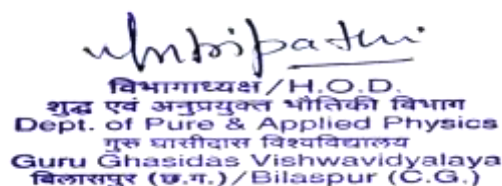 विभागाध्यक्ष/H.O.D.
शुद्ध एवं अनुप्रयुक्त भौतिकी विभाग
Dept. of Pure & Applied Physics
गुरू घासीदास विश्वविद्यालय
Guru Ghasidas Vishwavidyalaya
बिलासपुर (छ.ग.)/Bilaspur (C.G.)